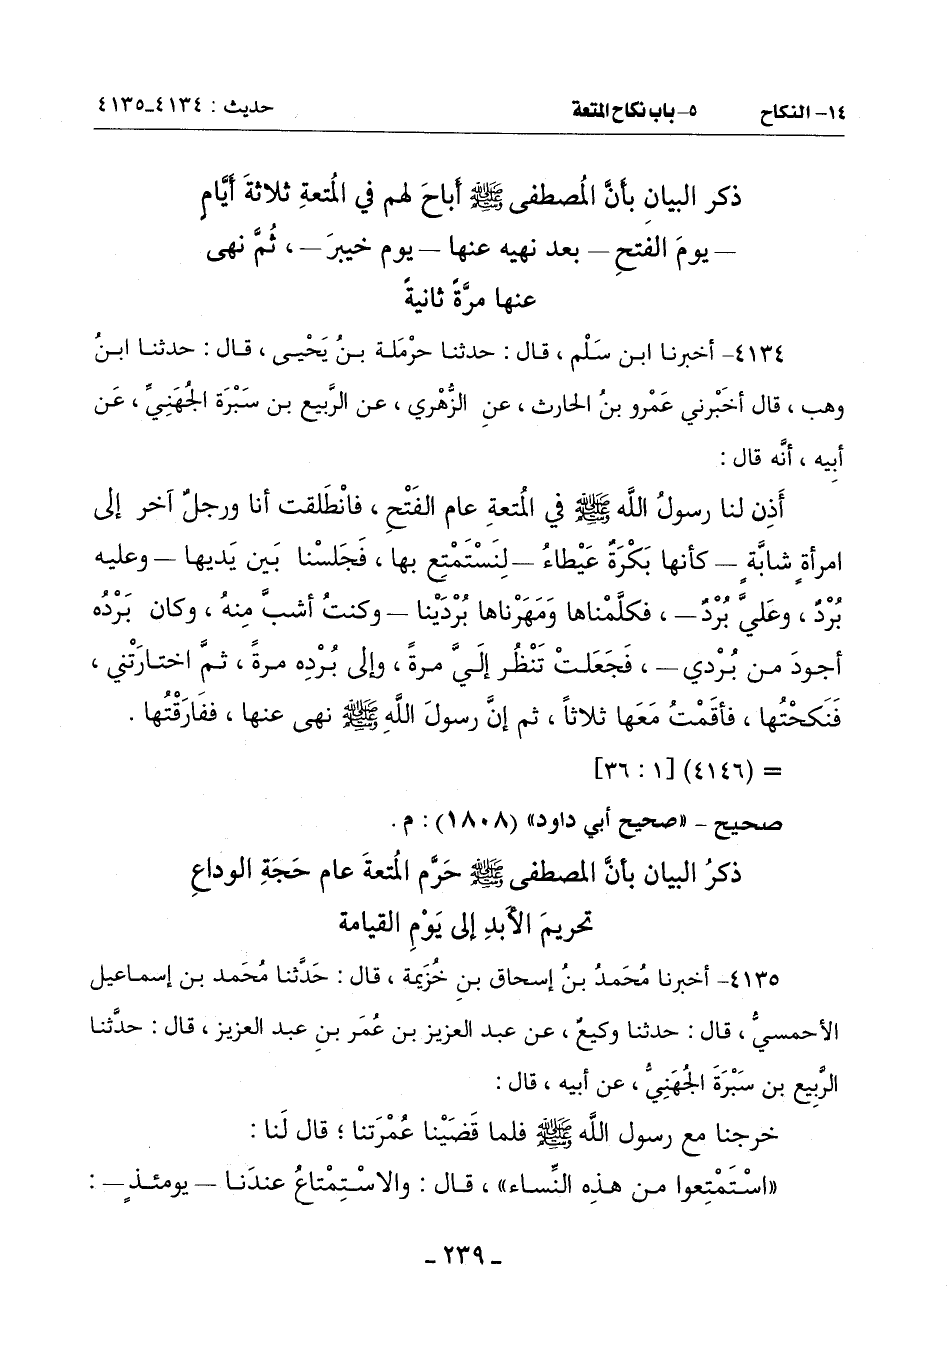 ١٤- النكاح ٥- باب نكاح المتعة حديث : ٤١٣٤-٤١٣٥
ذكر البيان بأنَّ المُصطفى ﷺ أباحَ لهم في المُتعةِ ثلاثةَ أيَّامٍ
– يومَ الفتحِ – بعد نهيه عنها – يوم خيبرَ – ، ثُمَّ نهى
عنها مرَّةً ثانيةً
٤١٣٤- أخبرنا ابن سَلْم ، قال : حدثنا حرْمَلة بنُ يَحْيى ، قال : حدثنا ابنُ
وهب ، قال أخبْرني عَمْرو بنُ الحارث ، عنِ الزُّهْري ، عن الرَّبيع بن سَبْرَة الجُهَنِيِّ ، عَن
أبيه ، أنَّه قال :
أَذِن لنا رسولُ اللَّه ﷺ في المُتعةِ عام الفَتْحِ ، فانْطَلقت أنا ورجلٌ آخر إلى
امرأةٍ شابَّةٍ – كأنها بَكْرَةٌ عَيْطاءُ – لِنَسْتَمْتِع بها ، فَجَلسْنا بَين يَديها – وعليه
بُرْدٌ ، وعَليَّ بُرْدٌ – ، فكلَّمْناها وَمَهَرْناها بُرْدَيْنا – وكنتُ أشبَّ منهُ ، وكان بَرْدُه
أجودَ من بُرْدي – ، فَجَعَلتْ تَنْظُر إلَيَّ مرةً ، وإلى بُرْدِه مرةً ، ثمَّ اختارَتْني ،
فَنَكحْتُها ، فأقَمْتُ مَعَها ثلاثاً ، ثم إنَّ رسولَ اللَّهِ ﷺ نهى عنها ، ففَارَقْتُها .
= (٤١٤٦) [١ : ٣٦]
صحيح - «صحيح أبي داود» (١٨٠٨) : م .
ذكرُ البيان بأنَّ المصطفى ﷺ حَرَّم المُتعةَ عام حَجَةِ الوداعِ
تحريمَ الأَبدِ إلى يَوْمِ القيامة
٤١٣٥- أخبرنا مُحَمدُ بنُ إسحاق بنِ خُزَيمة ، قال : حَدَّثنا مُحَمد بن إسماعيل
الأحمسيُّ ، قال : حدثنا وكيعٌ ، عن عبد العزيز بن عُمَر بنِ عبد العزيز ، قال : حدَّثنا
الرَّبيع بن سَبْرَةَ الجُهَنيُّ ، عن أبيه ، قال :
خرجنا مع رسول اللَّه ﷺ فلما قَضَيْنا عُمْرَتنا ؛ قال لَنا :
«اسْتَمْتِعوا من هذه النِّساء» ، قال : والاسْتِمْتاعُ عندَنا – يومئذٍ – :
- ٢٣٩ -